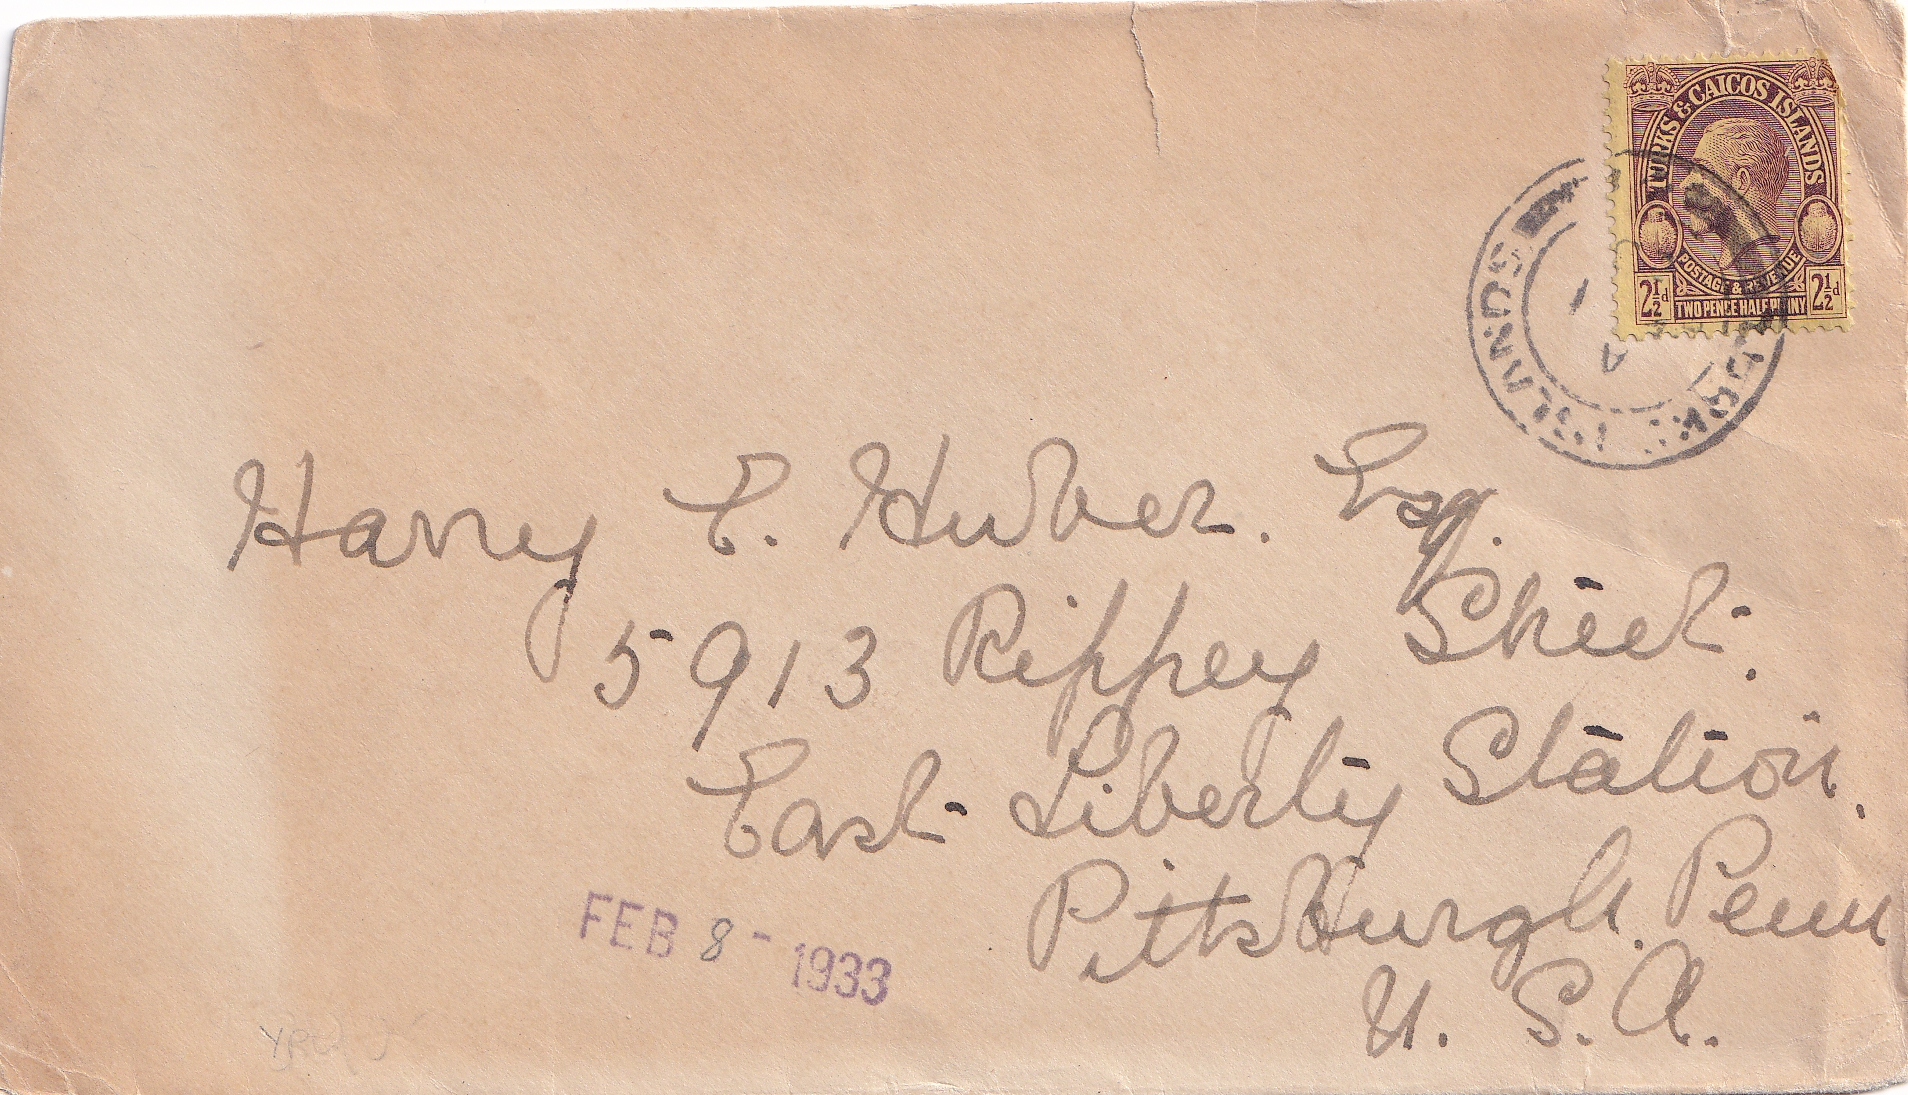 TURKS & CAICOS ISLANDS
POSTAGE & REVENUE
2½d TWO PENCE HALF PENNY 2½d
ISLANDS
A
Harry E. Huber. Esq.
5913 Rippey Street.
East Liberty Station.
Pittsburgh. Penn
U. S. A.
FEB 8 - 1933